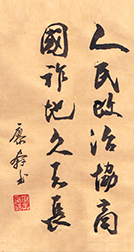 人民政治協商
國祚地久天長
康釋書